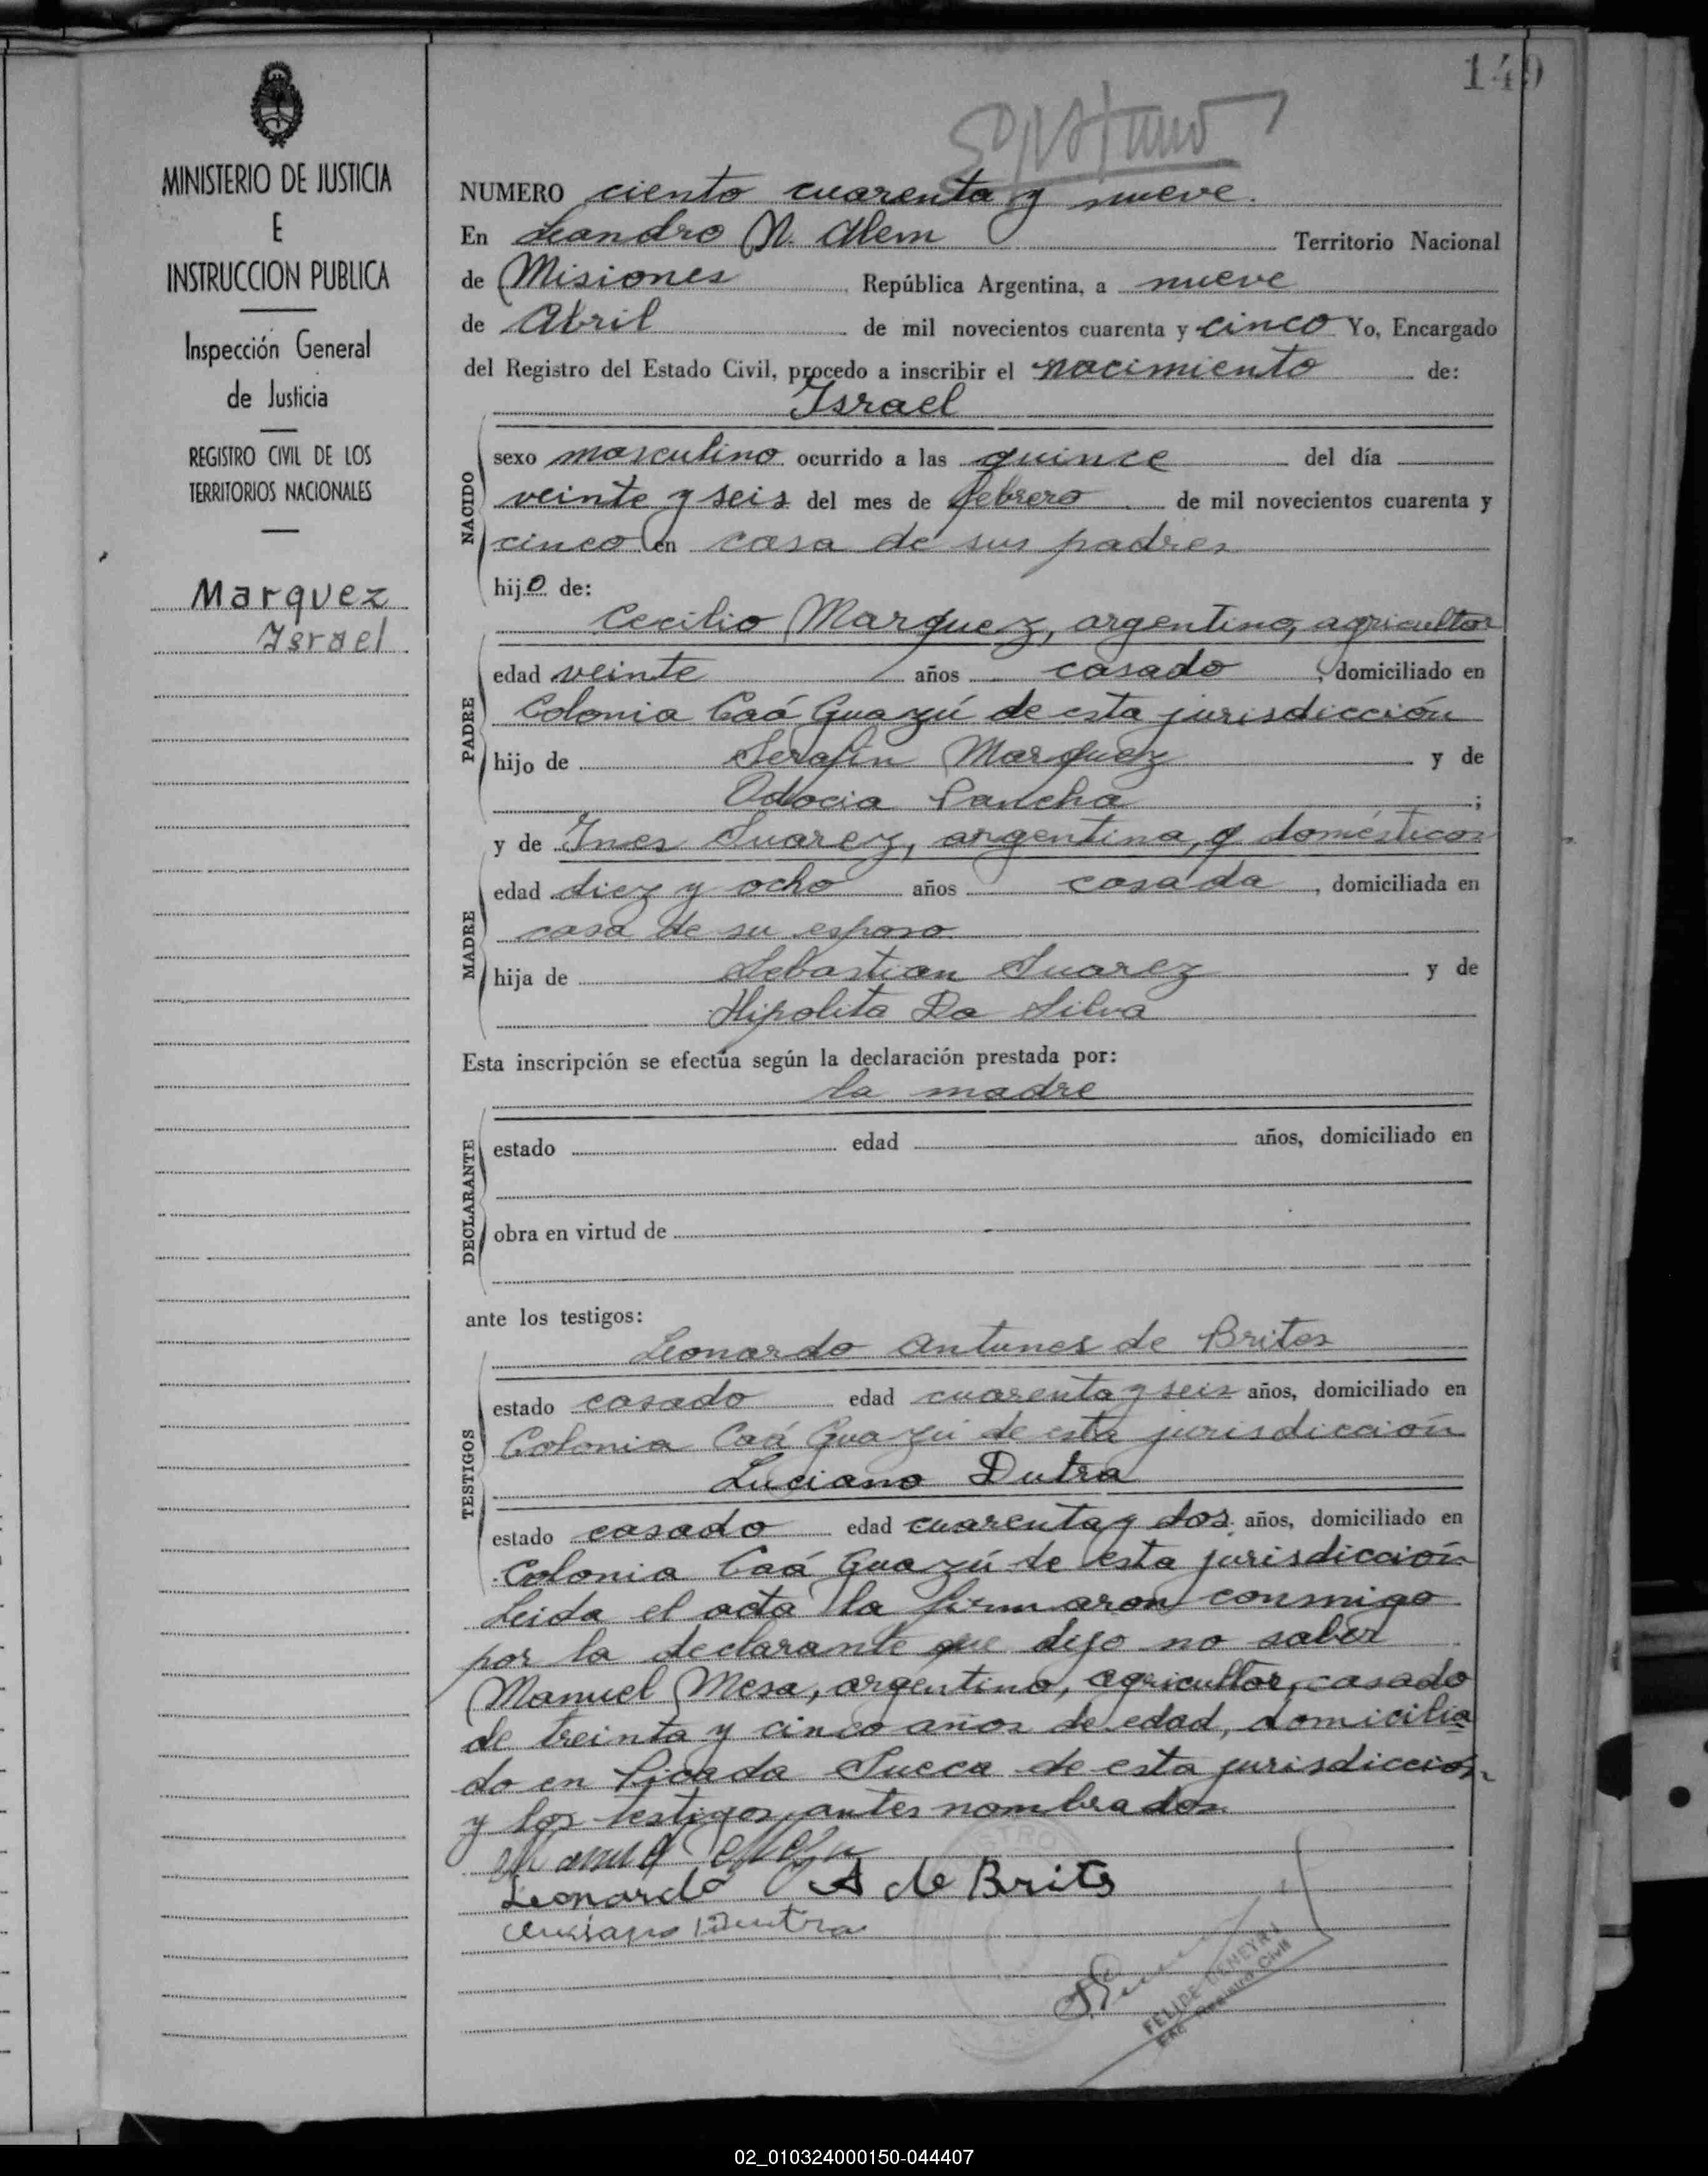 149
MINISTERIO DE JUSTICIA
E
INSTRUCCION PUBLICA
Inspección General
de Justicia
REGISTRO CIVIL DE LOS
TERRITORIOS NACIONALES
Marquez
Israel
NUMERO ciento cuarenta y nueve.
En Leandro N. Alem Territorio Nacional
de Misiones República Argentina, a nueve
de Abril de mil novecientos cuarenta y cinco Yo, Encargado
del Registro del Estado Civil, procedo a inscribir el nacimiento de:
Israel
NACIDO
sexo masculino ocurrido a las quince del día
veinte y seis del mes de febrero de mil novecientos cuarenta y
cinco en casa de sus padres
hijo de:
Cecilio Marquez, argentino, agricultor
PADRE
edad veinte años casado, domiciliado en
Colonia Caá Guazú de esta jurisdicción
hijo de Serafin Marquez y de
Odocia Pancha;
y de Ines Suarez, argentina, q domésticos
MADRE
edad diez y ocho años casada, domiciliada en
casa de su esposo
hija de Sebastian Suarez y de
Hipolita Da Silva
Esta inscripción se efectúa según la declaración prestada por:
la madre
DECLARANTE
estado edad años, domiciliado en
obra en virtud de
ante los testigos:
Leonardo Antunes de Brites
TESTIGOS
estado casado edad cuarenta y seis años, domiciliado en
Colonia Caá Guazú de esta jurisdicción
Luciano Dutra
estado casado edad cuarenta y dos años, domiciliado en
Colonia Caá Guazú de esta jurisdicción
Leida el acta la firmaron conmigo
por la declarante que dijo no saber
Manuel Mesa, argentino, agricultor, casado
de treinta y cinco años de edad, domicilia
do en Picada Sueca de esta jurisdicción
y los testigos antes nombrados.
Leonardo A de Brits
Dutra
FELIPE
Enc. Registro Civil
02_010324000150-044407